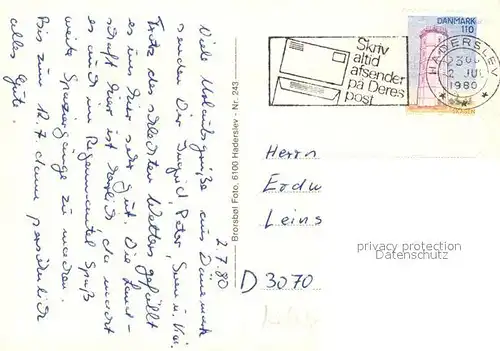 2.7.80
Viele Urlaubsgrüße aus Dänemark
senden Dir Ingrid, Peter, Sven u. Kai.
Trotz des schlechten Wetters gefällt
es uns hier sehr gut. Die Land-
schaft hier ist herrlich, da macht
es auch im Regenmantel Spaß
weite Spaziergänge zu machen.
Bis zum 12.7. dann persönlich
alles Gute.
Brorsbøl Foto, 6100 Haderslev - Nr. 243
Skriv
altid
afsender
på Deres
post
DANMARK
110
SKAGEN
HADERSLEV
2 JUL
1980
Herrn
Leins
D 3070
privacy protection
Datenschutz